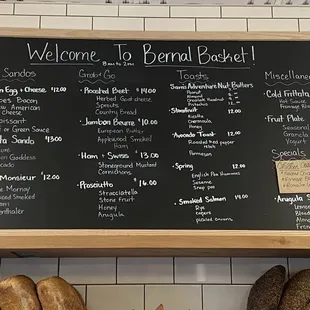 Welcome To Bernal Basket!
Sandos
n Egg + Cheese $12.00
oes Bacon
American
oissant
or Green Sauce
ta Sando $13.00
n Goddess
cado
Monsieur $12.00
Mornay
ed Smoked
ri
enthaler
Grab + Go
Roasted Beet $14.00
Herbed Goat cheese
Sprouts
Country Bread
Jambon Beurre $10.00
European Butter
Applewood Smoked
Ham
Ham + Swiss $13.00
Stoneground Mustard
Cornichons
Prosciutto $16.00
Stracciatella
Stone fruit
Honey
Arugula
Toasts
Sam's Adventure Nut Butters
Peanut $10.00
Almond
Chocolate Hazelnut
Pistachio
Stonefruit $12.00
Ricotta
Honey
Avocado Toast $12.00
Roasted red pepper
Parmesan
Spring $12.00
English Pea Hummus
Sesame
Snap pea
Smoked Salmon $14.00
Rye
capers
pickled onions
Miscellane
Cold Frittata
Hot Sauce
Fruit Plate
Seasonal
Granola
Yogurt
Specials
Arugula S
Lemon
Almond
Fro